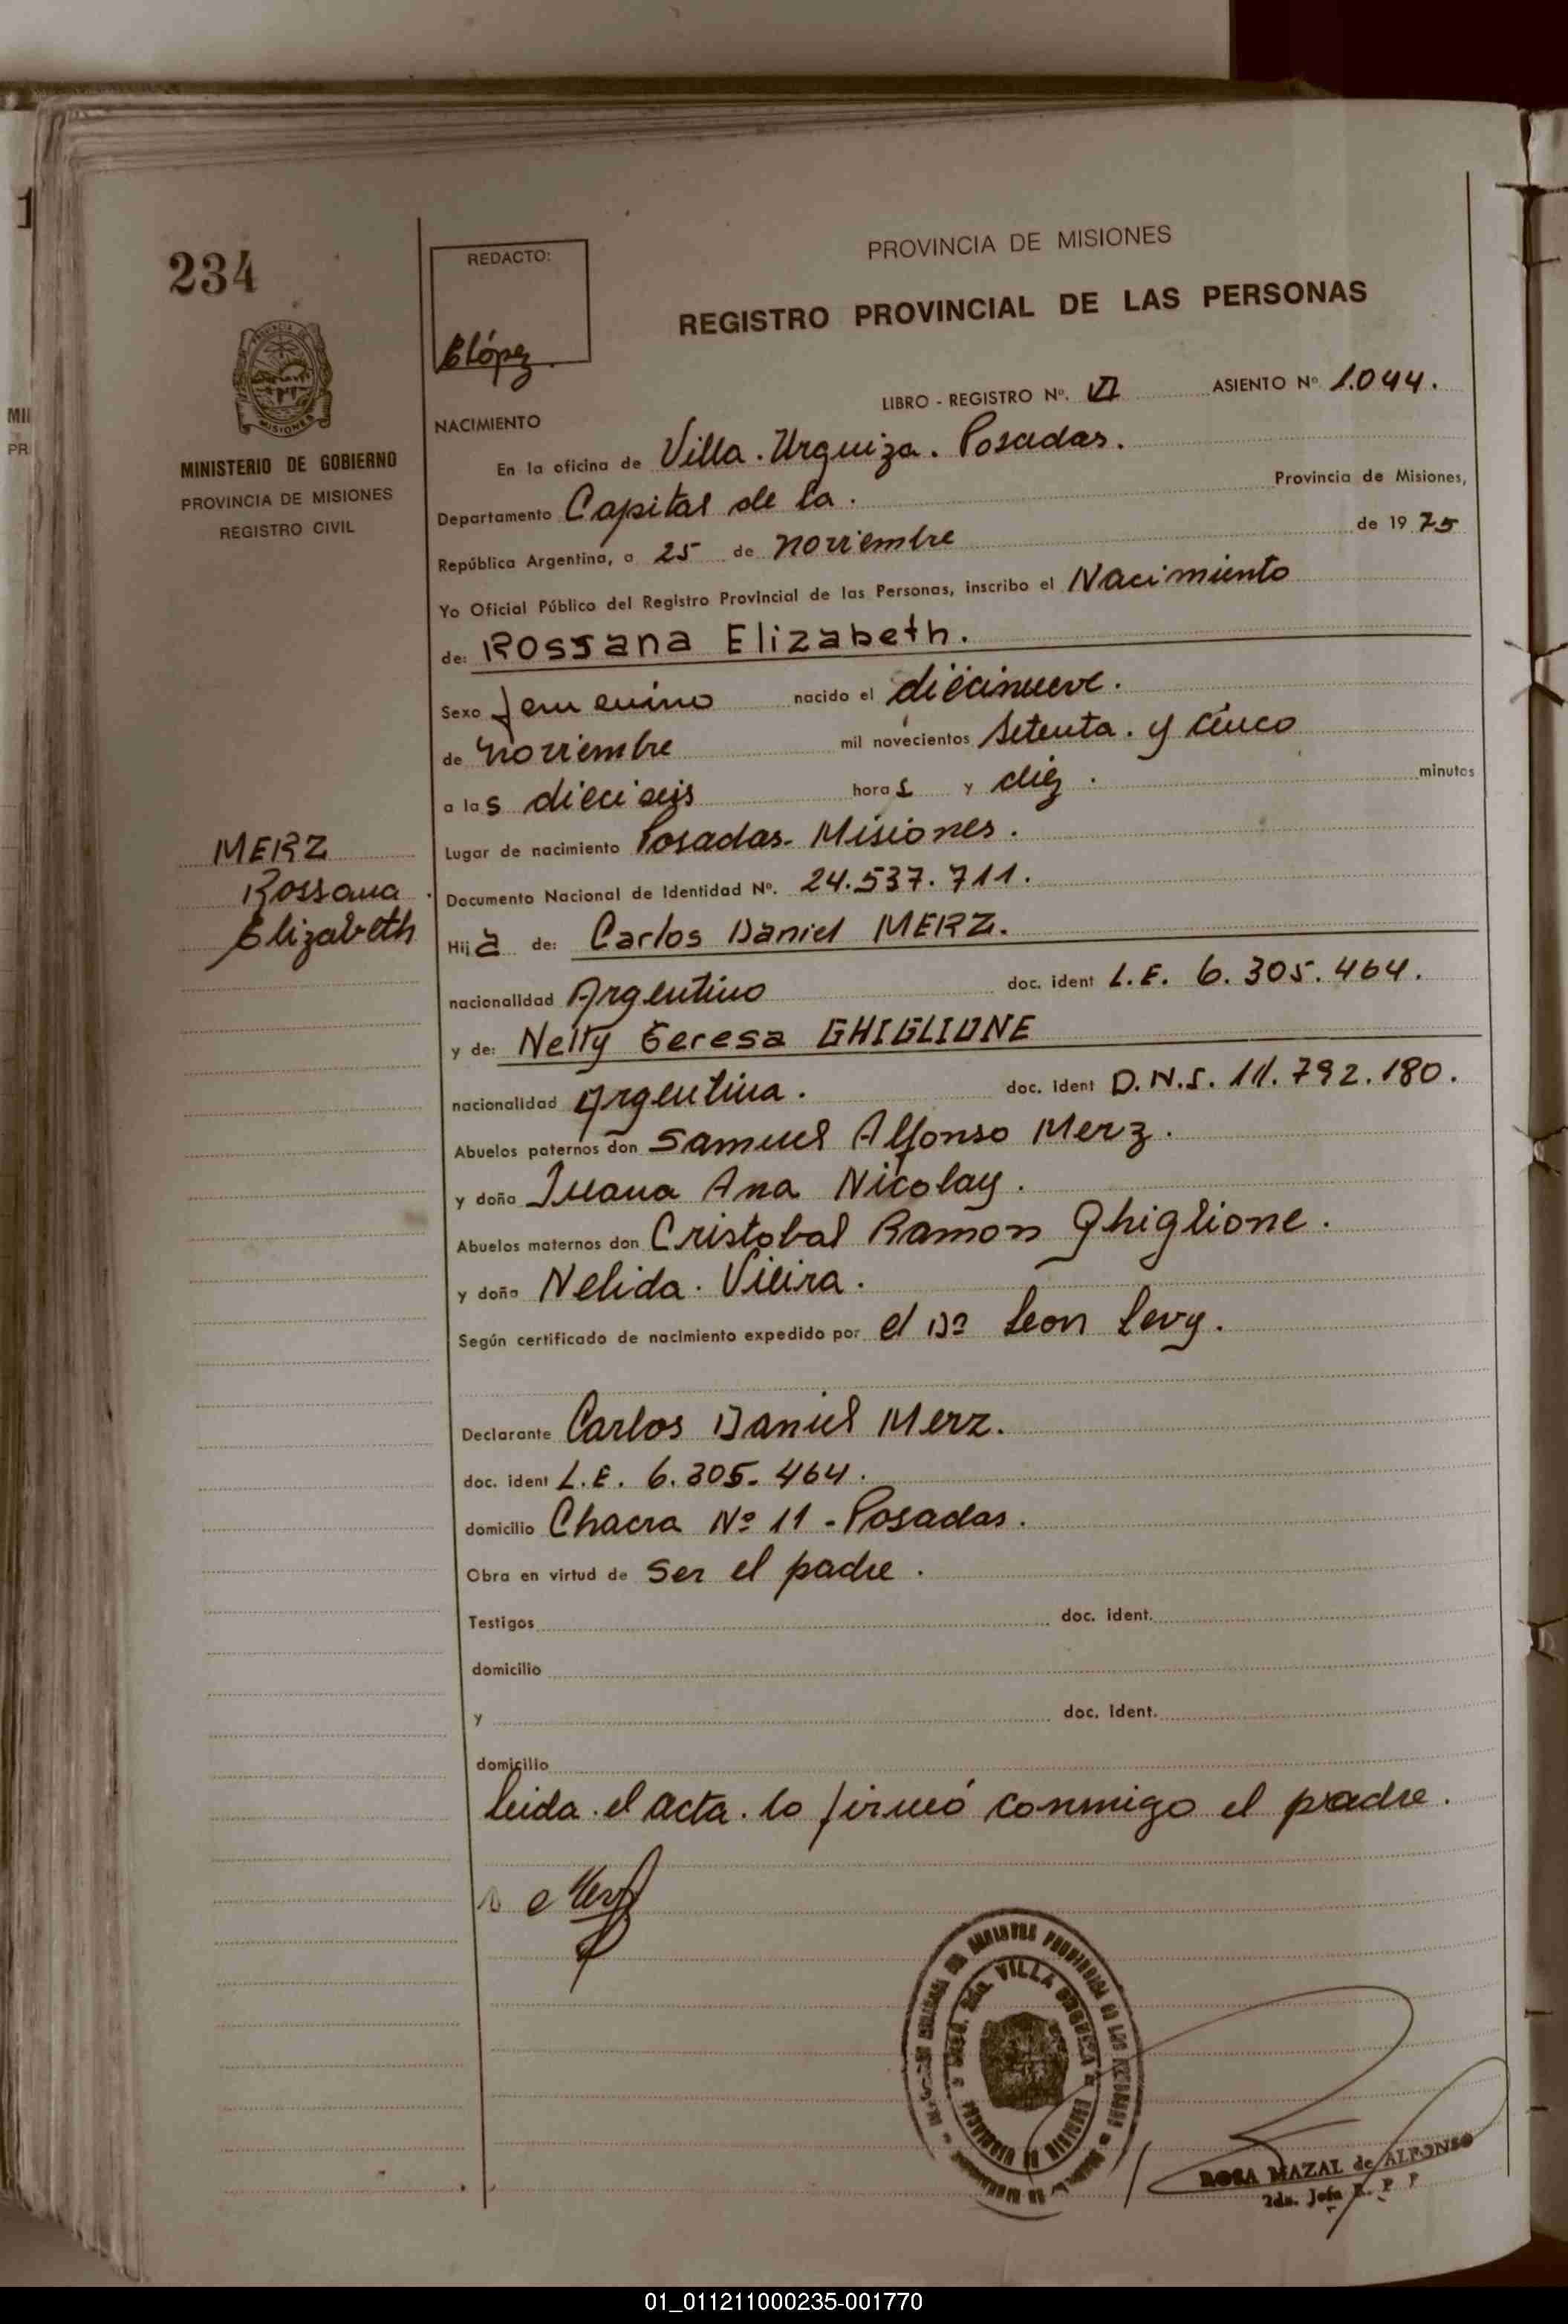 234
REDACTO:
ELópez.
PROVINCIA DE MISIONES
REGISTRO PROVINCIAL DE LAS PERSONAS
MINISTERIO DE GOBIERNO
PROVINCIA DE MISIONES
REGISTRO CIVIL
LIBRO - REGISTRO Nº. VI ASIENTO Nº 1.044.
NACIMIENTO
En la oficina de Villa. Urquiza. Posadas.
Departamento Capital de la. Provincia de Misiones,
República Argentina, a 25 de noviembre de 1975
Yo Oficial Público del Registro Provincial de las Personas, inscribo el Nacimiento
de: Rossana Elizabeth.
Sexo femenino nacido el diecinueve.
de noviembre mil novecientos Setenta. y cinco
a las dieciseis horas y diez. minutos
MERZ
Rossana
Elizabeth
Lugar de nacimiento Posadas- Misiones.
Documento Nacional de Identidad Nº. 24.537.711.
Hija de: Carlos Daniel MERZ.
nacionalidad Argentino doc. ident L.E. 6.305.464.
y de: Nelly Teresa GHIGLIONE
nacionalidad Argentina. doc. ident D.N.I. 11.792.180.
Abuelos paternos don Samuel Alfonso Merz.
y doña Juana Ana Nicolay.
Abuelos maternos don Cristobal Ramon Ghiglione.
y doña Nelida. Vieira.
Según certificado de nacimiento expedido por el Dr Leon Levy.
Declarante Carlos Daniel Merz.
doc. ident L.E. 6.305.464.
domicilio Chacra Nº 11 - Posadas.
Obra en virtud de ser el padre.
Testigos doc. ident.
domicilio
y doc. ident.
domicilio
leida. el acta. lo firmó conmigo el padre.
VILLA URQUIZA
ROSA MAZAL de ALFONSO
2da. Jefa R. P. P
01_011211000235-001770